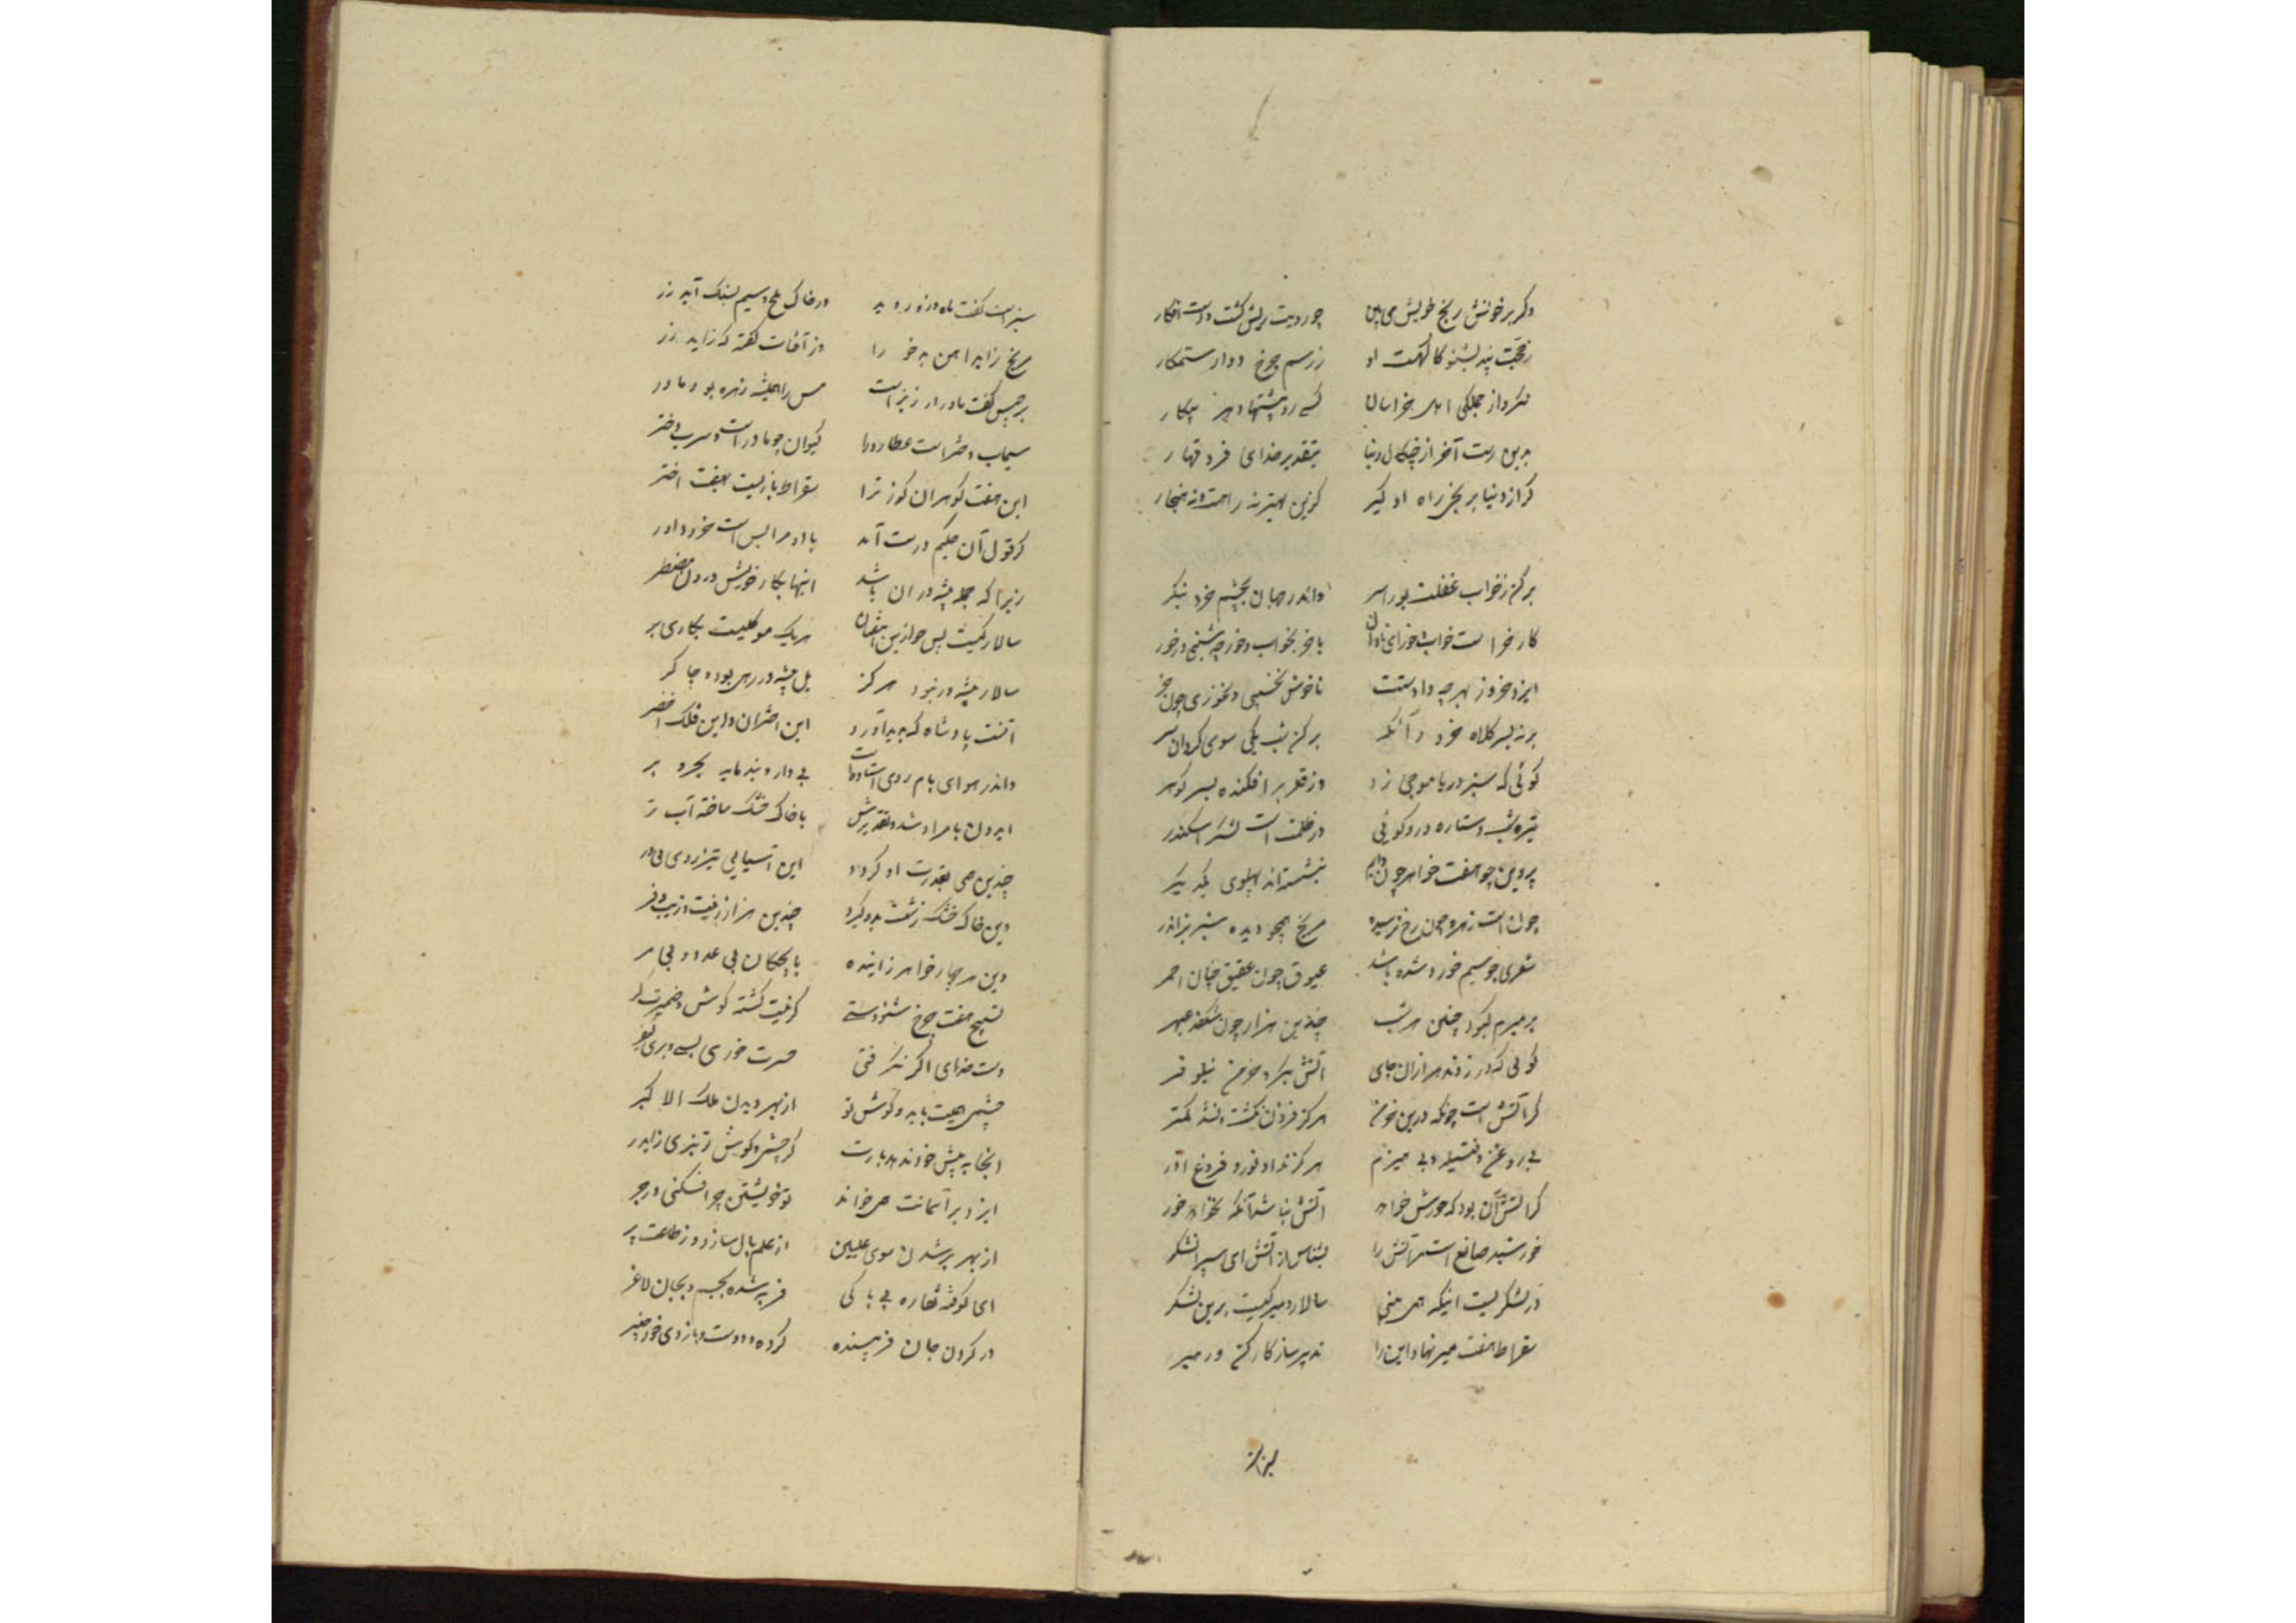 وگر برخونش ریخ خویش می بین چو رویت ریش گشت و دست افکار
زحجت پند بشنو کاگهست او ز رسم چرخ دوار ستمکار
بدین رست آخر از چنگال دنیا بتقدیر خدای فرد قهار
گر از دنیا برنجی راه او گیر کزین بهتر نه راهست و نه هنجار
برکن ز خواب غفلت پورا سر واندر جهان بچشم خرد بنگر
کار خر است خواب و خور ای نادان با خر بخواب و خور چه شنی در خور
ایزد خرد ز بهر چه دادستت تا خوش بخسپی و بخوری چون خر
بر نه بسر کلاه خرد وانگه برکن بشب یکی سوی گردون سر
گوئی که سبز دریا موجی زد وز قعر برافکنده بسر گوهر
تیره شب و ستاره درو گوئی در ظلمت است لشکر اسکندر
پروین چو هفت خواهر چون دایم بنشسته اند پهلوی یکدیگر
چون است زهره چون رخ ترسیده مریخ همچو دیده شیر نر اندر
شعری چو سیم خود شده باشد عیوق چون عقیق چنان احمر
بر مبرم کبود چنین هر شب چندین هزار چون شکفد عبهر
گوئی که در زدند هزاران جای آتش بگرد خرمن نیلوفر
گر آتش است چونکه درین خرمن هرگز فزون نگشت و نشد کمتر
بی روغن و فتیله و بی هیزم هرگز نداد نور و فروغ آذر
گر آتش آن بود که خورش خواهد آتش نباشد آنکه نخواهد خور
خورشید صانع است مر آتش را بشناس از آتش ای پسر آتشگر
در لشکریست اینکه همی بینی سالار و میر کیست برین لشکر
سقراط هفت میر نهاد این را تدبیر ساز کارکن و رهبر
سبز است گفت ماه و زو روید در خاک ملح و سیم بسنگ آید زر
مریخ زاید آهن بد خو را وز آفتاب گفت که زاید زر
برجیس گفت مادر ارزیز است مس را همیشه زهره بود مادر
سیماب دختر است عطارد را کیوان چو مادر است و سرب دختر
این هفت گوهران گدازان را سقراط باز بست بهفت اختر
گر قول آن حکیم درست آمد با او مرا بس است خرد داور
زیرا که جمله پیشه وران باشد اینها بکار خویش درون مضطر
سالار کیست پس چو ازین هفتان هر یک موکلیست بکاری بر
سالار پیشه ور نبود هرگز بل پیشه ور رهی بود و چاکر
آنست پادشاه که پدید آورد این اختران و این فلک اخضر
واندر هوای بام روی استادست بی دار و بند مایه بجر و بر
ایدون بامر او شد و تقدیرش با خاک خشک ساخته آب تر
چندین همی بقدرت او گردد این آسیای تیزرو بی در
وین خاک خشک زشت بدو گیرد چندین هزار زینت و زیب و فر
وین هر چهار خواهر زاینده با بچگان بی عدد و بی مر
تسبیح هفت چرخ شنودستی گر نیست گشته گوش و ضمیرت کر
دست خدای اگر نگرفتی حسرت خوری بسی و بری کیفر
چشمیت بباید و گوش نو از بهر دیدن ملک الاکبر
آنجا به پیش خود ندهد بارت گر چشم و گوش تیز بری زایدر
ایزد بر آسمانت همی خواند تو خویشتن چرا فکنی در جر
از بهر بر شدن سوی علیین از علم پای ساز و ز طاعت پر
ای کوفته نقاره بی باکی فربه شده بجسم و بجان لاغر
در گردن جهان فریبنده کرده دو دست و بازوی خود چنبر